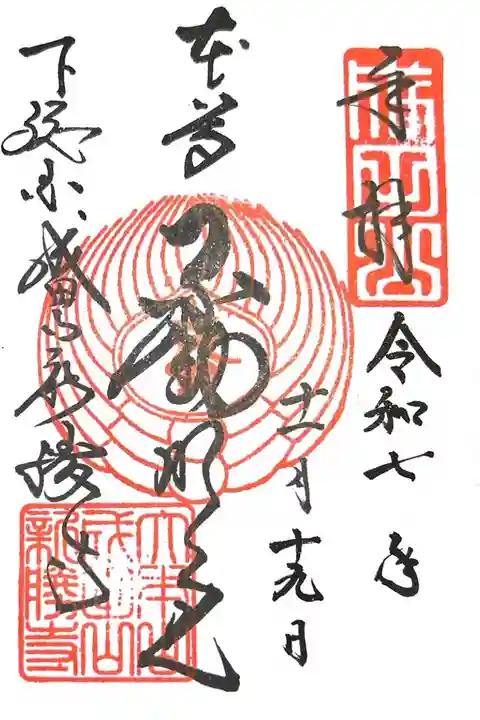 奉拝
令和七年
十一月十九日
本尊
不動明王
下総国成田山新勝寺
大本山
成田山
新勝寺